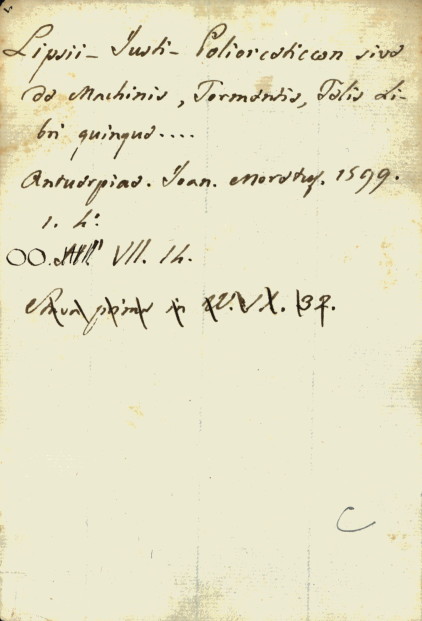 Lipsii - Justi - Poliorceticωn sive
de Machinis, Tormentis, Telis Li-
bri quinque....
Antuerpiae. Joan. Moretus. 1599.
1. 4º.
OO. VII. 14.
V. X. 32.
C